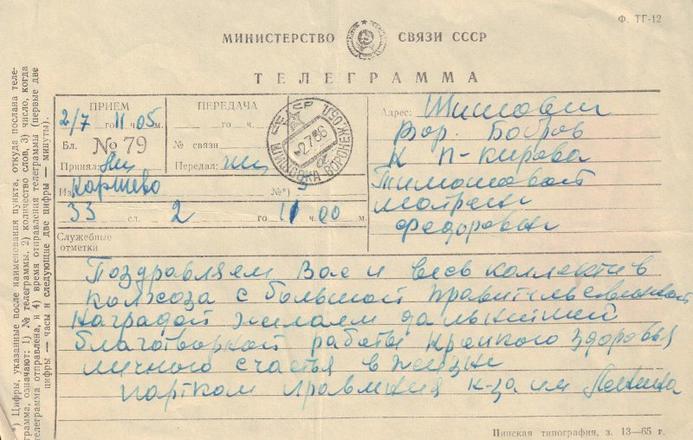 Ф. ТГ-12
МИНИСТЕРСТВО СВЯЗИ СССР
ТЕЛЕГРАММА
ПРИЕМ
2/7 го 11 ч. 05 м.
Бл. № 79
Принял:
ПЕРЕДАЧА
го ч. м.
№ связи
Передал:
2.7.66
Адрес:
Вор.
к-п Кирова
Тимошовой
Матрене
Федоровне
Из Коршево № 5
33 сл. 2 го 11 ч. 00 м.
Служебные
отметки
Поздравляем Вас и весь коллектив
колхоза с большой правительственной
наградой желаем дальнейшей
благотворной работы крепкого здоровья
личного счастья в жизни
партком правления к-за им Ленина
Пинская типография, з. 13—65 г.
*) Цифры, указанные после наименования пункта, откуда послана теле-
грамма, означают: 1) № телеграммы, 2) количество слов, 3) число, когда
телеграмма отправлена, и 4) время отправления телеграммы (первые две
цифры — часы и следующие две цифры — минуты).